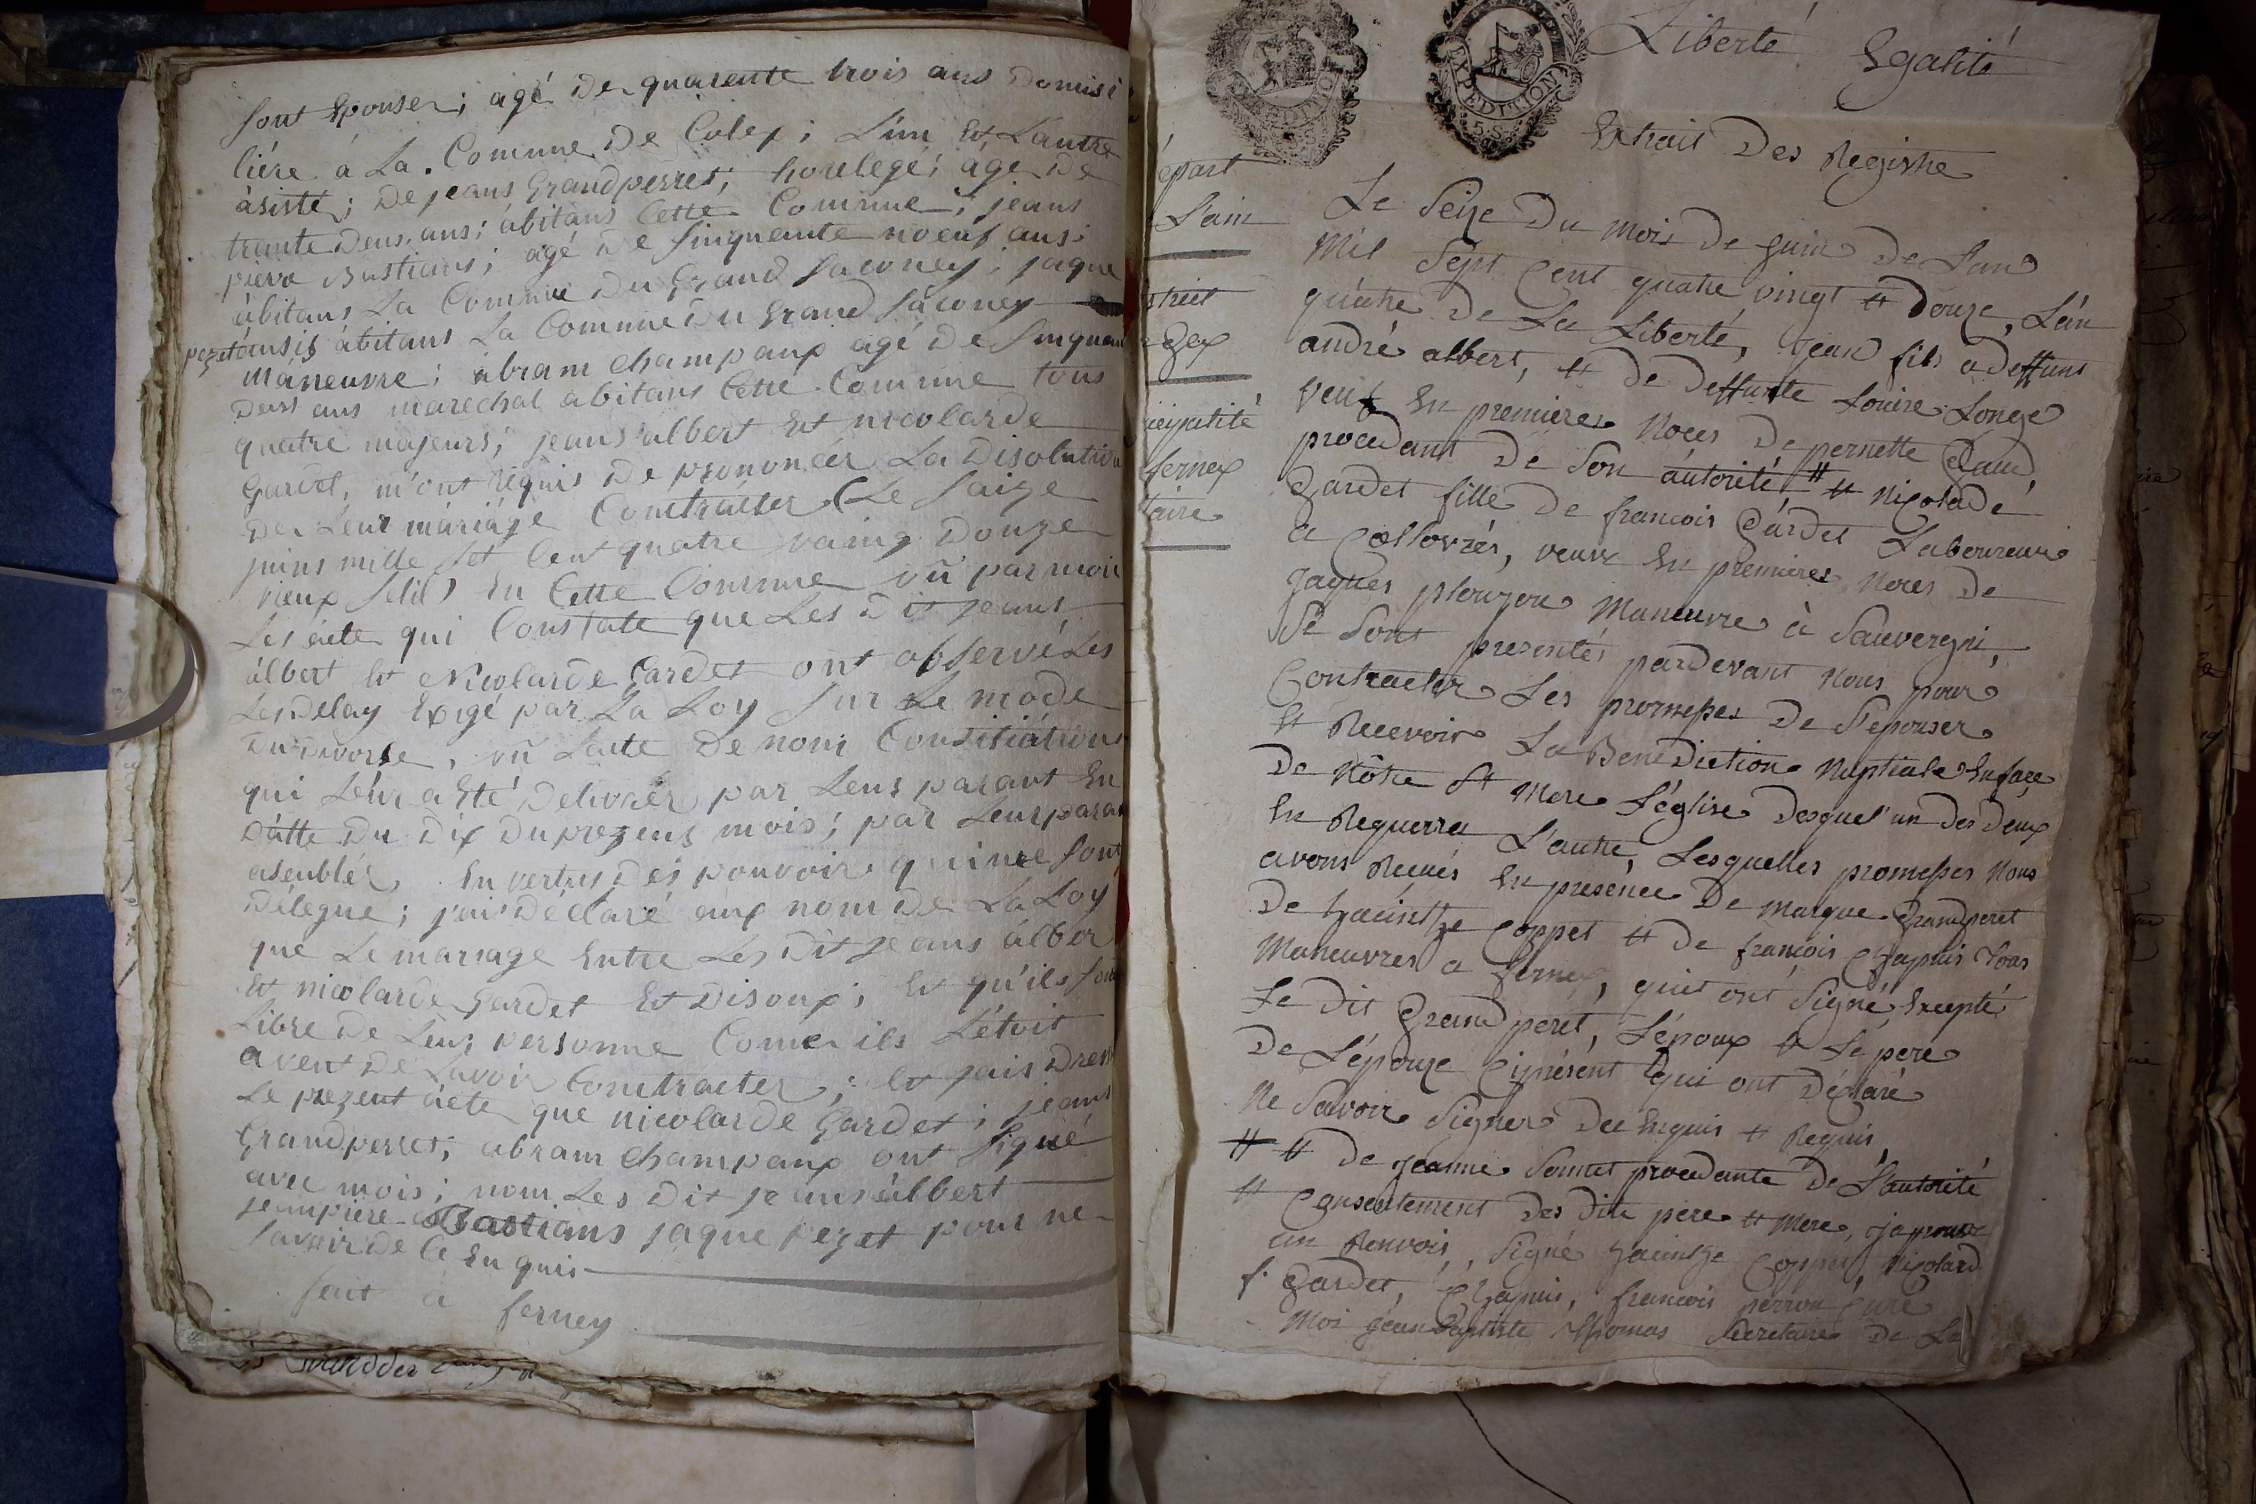 sont Epouser; agé De quarente trois ans Domisi
liére à La. Comune De Colex; L'un Et L'autre
àsisté; De jeans Grandperret; horelege; àgé De
trante Deus ans; àbitans Cette Comune; jeans
piere Bastians; agé De sinquante noeuf ans;
àbitans La Comune Du Grand Saconey; jaque
pezet áusis àbitans La Comune Du Grand Sáconey
máneuvre; abram Champaux agé De sinquan
Deus ans marechal abitans Cette Comune tous
quatre majeurs; jeans albert Et nicolarde
Gardet, m'ont réquis De prononcér La Disolution
De Leur máriáge Contraćter (Le saize
juins mille set Cent quatre vaing Douze
vieux stil) En Cette Comune vû par moi
Les ácte qui Constate que Les Dit jeans
álbert Et Nicolarde Gardet ont observé Les
Les Delay Exigé par La Loy sur Le mode
Du Divorse, vû L'acte De nom Consisiátion
qui Léur a Eté Delivrér par Leus parant En
Dátte Du Dix Du prezens mois; par Leur paran
asemblér, En vertus Dés pouvoir qui me sont
Délégué; j'ai Déclaré aux nom De La Loy
que Le mariage Entre Les Dit jeans álber
Et nicolarde Gardet Et Disoux; Et qu'ils son
Libre De Leur personne Come ils L'étoit
avent De Lavoir Contracter; Et jais Dress
Le prezent ácte que nicolarde Gardet; jeans
Grandperret; abram Champaux ont signé
avec mois; nom Les Dit jeans álbert
jeanpiere Bastians jaque pezet pour ne
savoir de Ce En quis
fait à ferney
épart
L'ain
strict
Gex
nicipalité
fernex
taire
Liberté Egalité
EXPEDITION
5.S.
EXPEDITION
5.S.
Extrait Des Registre
Le Seize Du mois De Juin De L'an
Mil Sept Cent quatre vingt et Douze, L'án
quatre De La Liberté, Jean fils a deffunt
andré albert, et De Deffunte Louise Longe
veuf En premieres Noces De pernette Chaud,
procedant De Son áutorité # et Nicoladé
Gardet fille De francois Gárdet Laboureur
a Collovrés, veuve En premieres Noces De
Jaques plouzou Maneuvre à Sauvergni,
Se Sont presentés pardevant Nous pour
Contracter Les promesses De S'epouser
Et Recevoir La Benediction Nuptiale En face
De Nôtre Ste Mere L'église Desquel'un des Deux
En Requerra L'autre, Lesquelles promesses Nous
avons Reçués En presénce De Marque Grandperet
De hacinthe Coppet et De francois Chapuis tous
Maneuvres a fernex, quit ont Signé Excepté
Le Dit Grand peret, L'époux et Le peré
De L'épouze Ciprésént qui ont Déclaré
Ne Savoir Signer De Enquis et Requis,
# # De Jeanne Sonnet procedante De L'autorité
et Consentement Des Dits pere et Mere, Japrouve
un Renvois, Signé hacinthe Coppet, Nicolard
f. Gardet, Chapuis, francois perrou Curé
Moi Jean Baptiste Thomas Secretaire De La